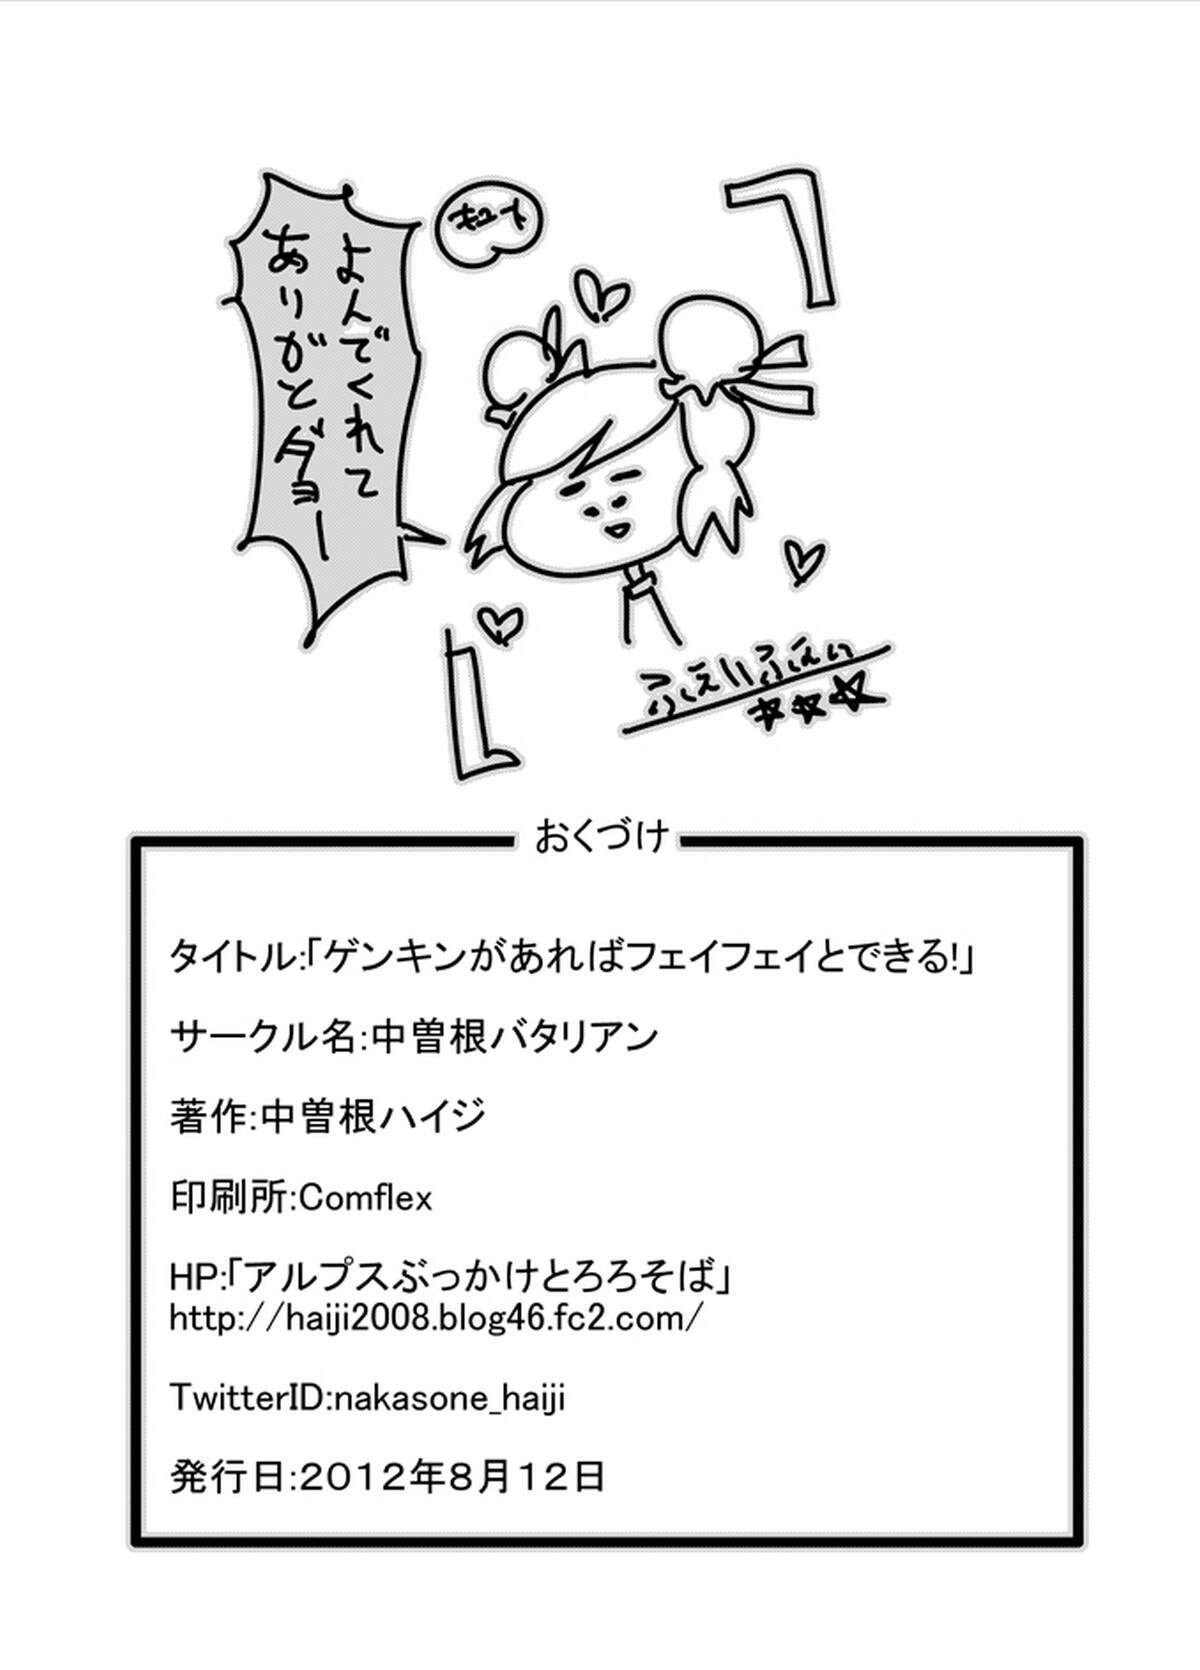 よんでくれて
ありがとダヨー
キュート
ふぇいふぇい
おくづけ
タイトル:「ゲンキンがあればフェイフェイとできる!」
サークル名:中曽根バタリアン
著作:中曽根ハイジ
印刷所:Comflex
HP:「アルプスぶっかけとろろそば」
http://haiji2008.blog46.fc2.com/
TwitterID:nakasone_haiji
発行日:2012年8月12日